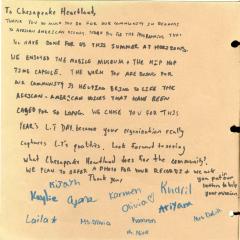 To Chesapeake Heartland,
Thank you so much you do for our community in regards
to African American voices. Thank you for the programs that
you have done for us this summer at Horizons.
We enjoyed the mobile museum & the hip hop
time capsule. The work you are doing for
our community is helping bring to life the
African-American voices that have been
caged for so long. We chose you for this
year's LIT Day because your organization really
captures LIT's portfolio. Look forward to seeing
what Chesapeake Heartland does for the community!
We plan to offer a photo for your records & we
Thank you,
put your
to help
your mission
Kaylie
Karmen
Khdril
Olivia
Ariyana
Laila
Ms. Olivia